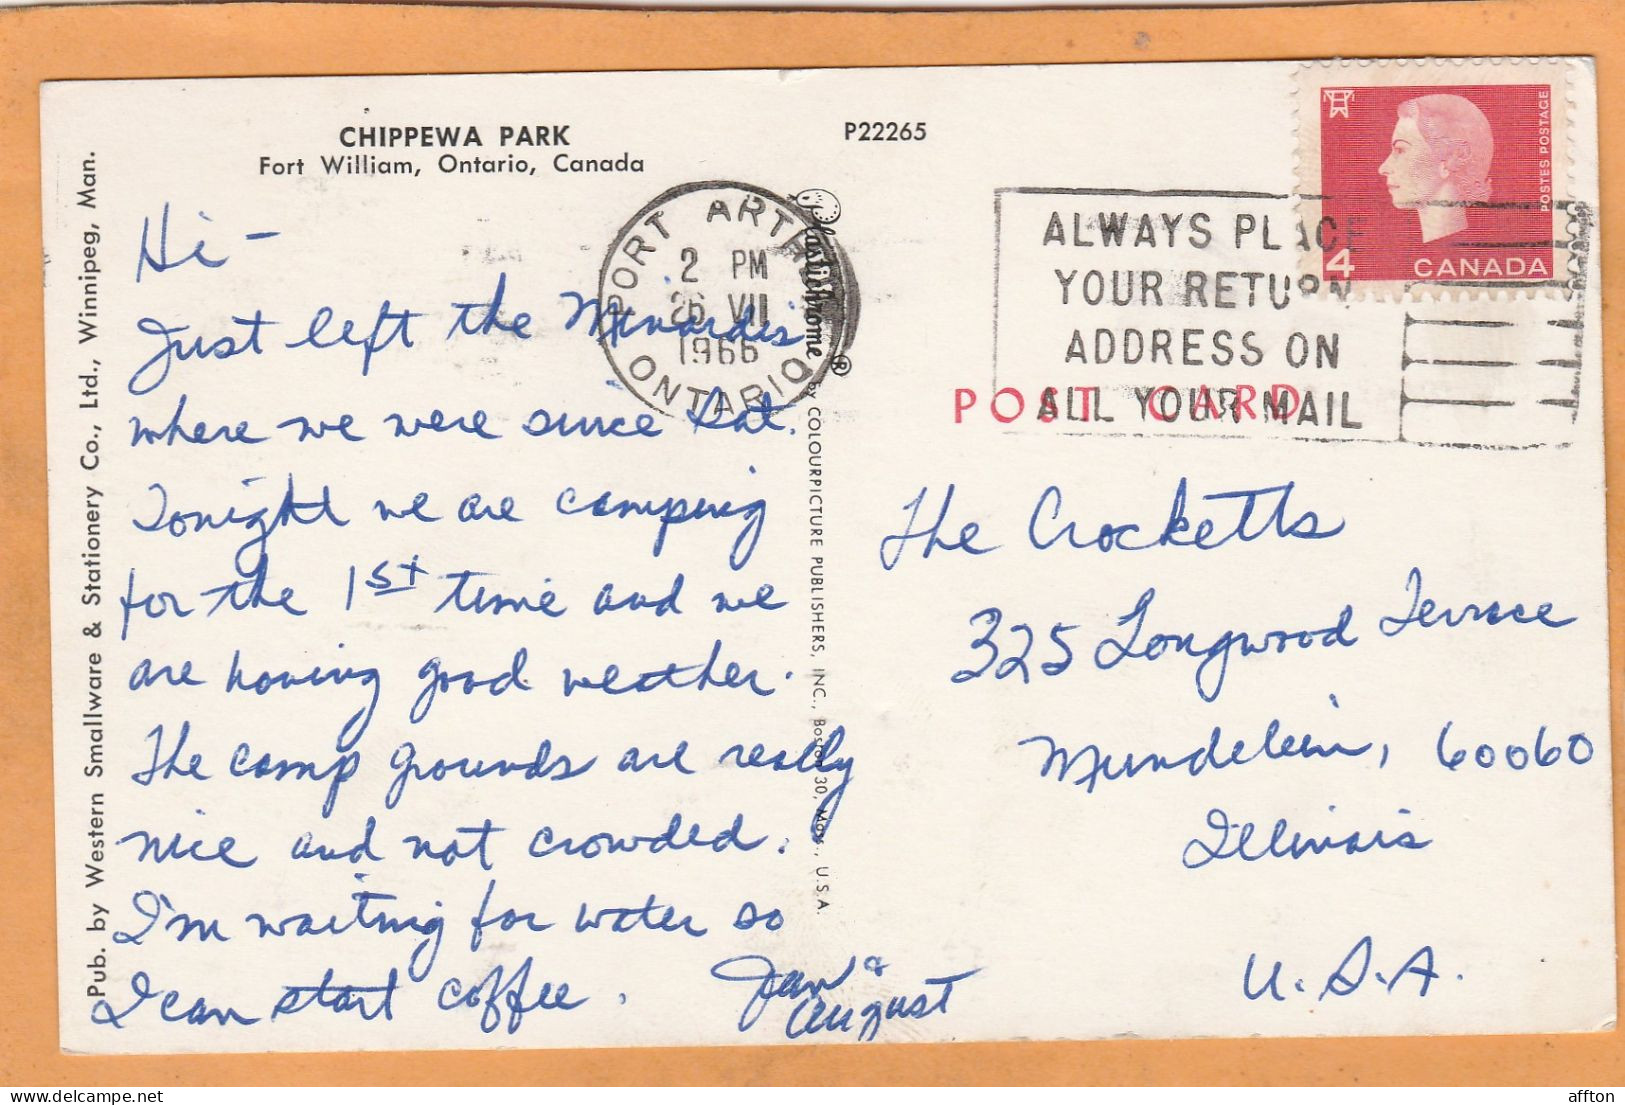 CHIPPEWA PARK
Fort William, Ontario, Canada
P22265
Pub. by Western Smallware & Stationery Co., Ltd., Winnipeg, Man.
Hi -
Just left the Minardis'
where we were since Sat.
Tonight we are camping
for the 1st time and we
are having good weather.
The camp grounds are really
nice and not crowded.
I'm waiting for water so
I can start coffee.
Jan &
August
Plastichrome ®
by COLOURPICTURE PUBLISHERS, INC., Boston 30, Mass., U.S.A.
PORT ARTHUR
2 PM
26 VII
1966
ONTARIO
ALWAYS PLACE
YOUR RETURN
ADDRESS ON
ALL YOUR MAIL
POSTES POSTAGE
4
CANADA
POST CARD
The Crocketts
325 Longwood Terrace
Mundelein, 60060
Illinois
U.S.A.
affton